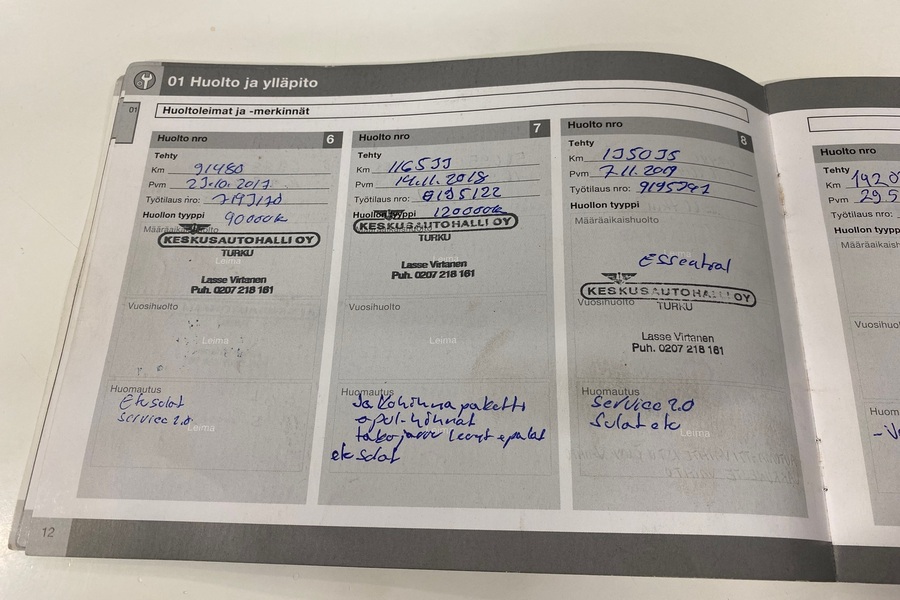 01 Huolto ja ylläpito
01
Huoltoleimat ja -merkinnät
Huolto nro 6
Tehty
Km 91480
Pvm 23.10.2017
Työtilaus nro:
Huollon tyyppi 90000k
Määräaikaishuolto
KESKUSAUTOHALLI OY
TURKU
Leima
Lasse Virtanen
Puh. 0207 218 161
Vuosihuolto
Leima
Huomautus
Etusulat
Service 2.0
Leima
Huolto nro 7
Tehty
Km
Pvm 14.11.2018
Työtilaus nro: 8195122
Huollon tyyppi 120000k
KESKUSAUTOHALLI OY
TURKU
Lasse Virtanen
Puh. 0207 218 161
Vuosihuolto
Leima
Huomautus
Jakohihna paketti
apul-hihnat
etu sulat
Huolto nro 8
Tehty
Km
Pvm 7.11.2019
Työtilaus nro:
Huollon tyyppi
Määräaikaishuolto
Essential
KESKUSAUTOHALLI OY
Vuosihuolto TURKU
Lasse Virtanen
Puh. 0207 218 161
Huomautus
Service 2.0
Sulat etu
Leima
Huolto nro
Tehty
Km
Pvm
Työtilaus nro:
Huollon
12